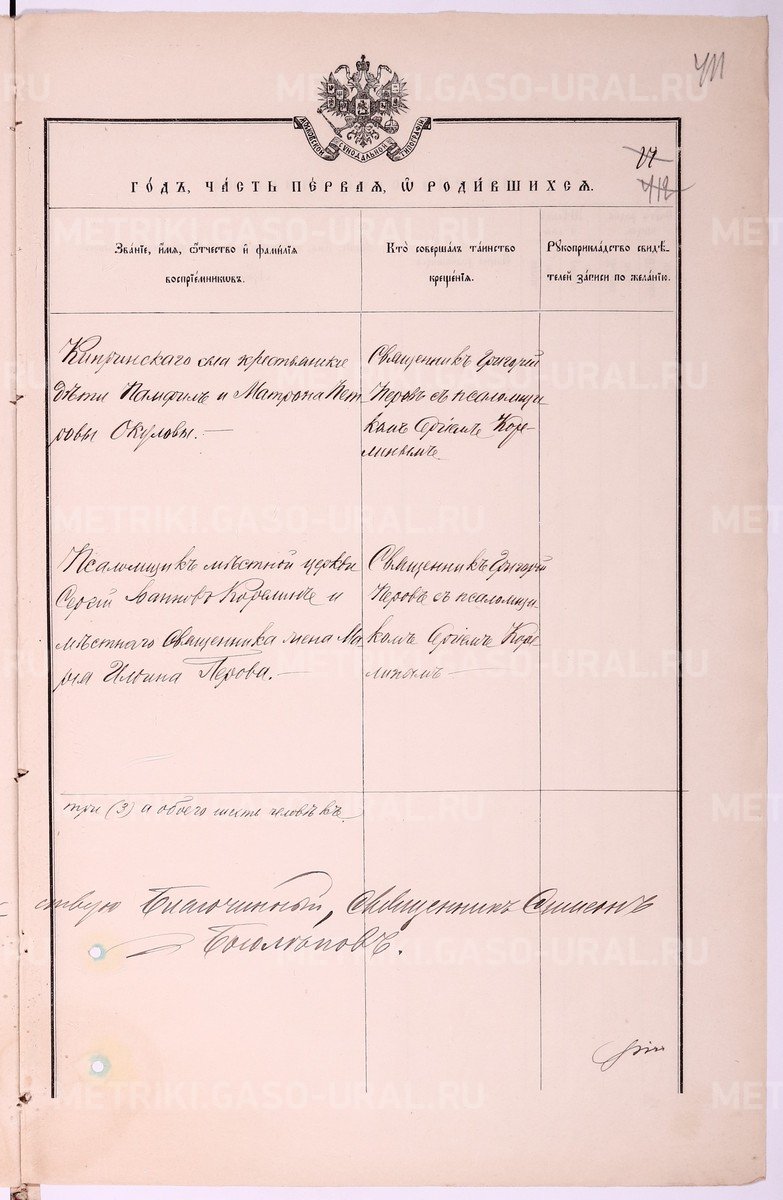 411
МОСКОВСКОЙ СѴНОДАЛЬНОЙ ТИПОГРАФІИ
17
412
ГО́ДЪ, ЧА́СТЬ ПЕ́РВАЯ, Ѡ҆ РОДИ́ВШИХСЯ.
Зва́нїе, и҆́мя, ѻ҆́тчество и҆ фамѝлїя
воспрїе́мникѡвъ.
Кто̀ соверша́лъ та́инство
креще́нїя.
Рꙋкоприкла́дство свидѣ́-
телей за́писи по жела́нїю.
села крестьянскіе
дѣти Памфилъ и Матрона Пет
ровы Окуловы.—
Священникъ Григорій
Перовъ съ псаломщи
комъ Сергіемъ Коре-
линымъ
Псаломщикъ мѣстной церкви
Сергій Корелинъ и
мѣстнаго Священника жена Ма
рія Ильина Перова.—
Священникъ Григорій
Перовъ съ псаломщи
комъ Сергіемъ Коре
линымъ—
три (3) а обоего шесть человѣкъ.
ствую Благочинный, Священникъ Симеонъ
METRIKI.GASO-URAL.RU